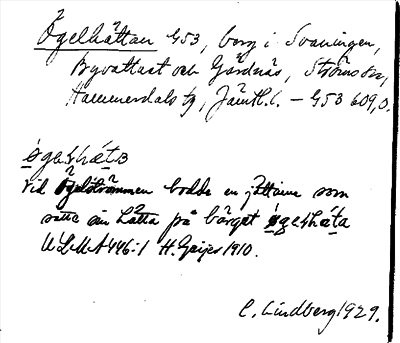 Ögelhättan 453, berg i Svaningen,
Byvattnet och Gärdnäs, Ströms sn,
Hammerdals tg, Jämtl. l. – 453 609,0.
øgelhæta
vid Ögelströmmen bodde en jättinna som
satte sin hätta på bärget øgelhæta
ULMA 446:1 H. Geijer 1910.
C. Lindberg 1929.